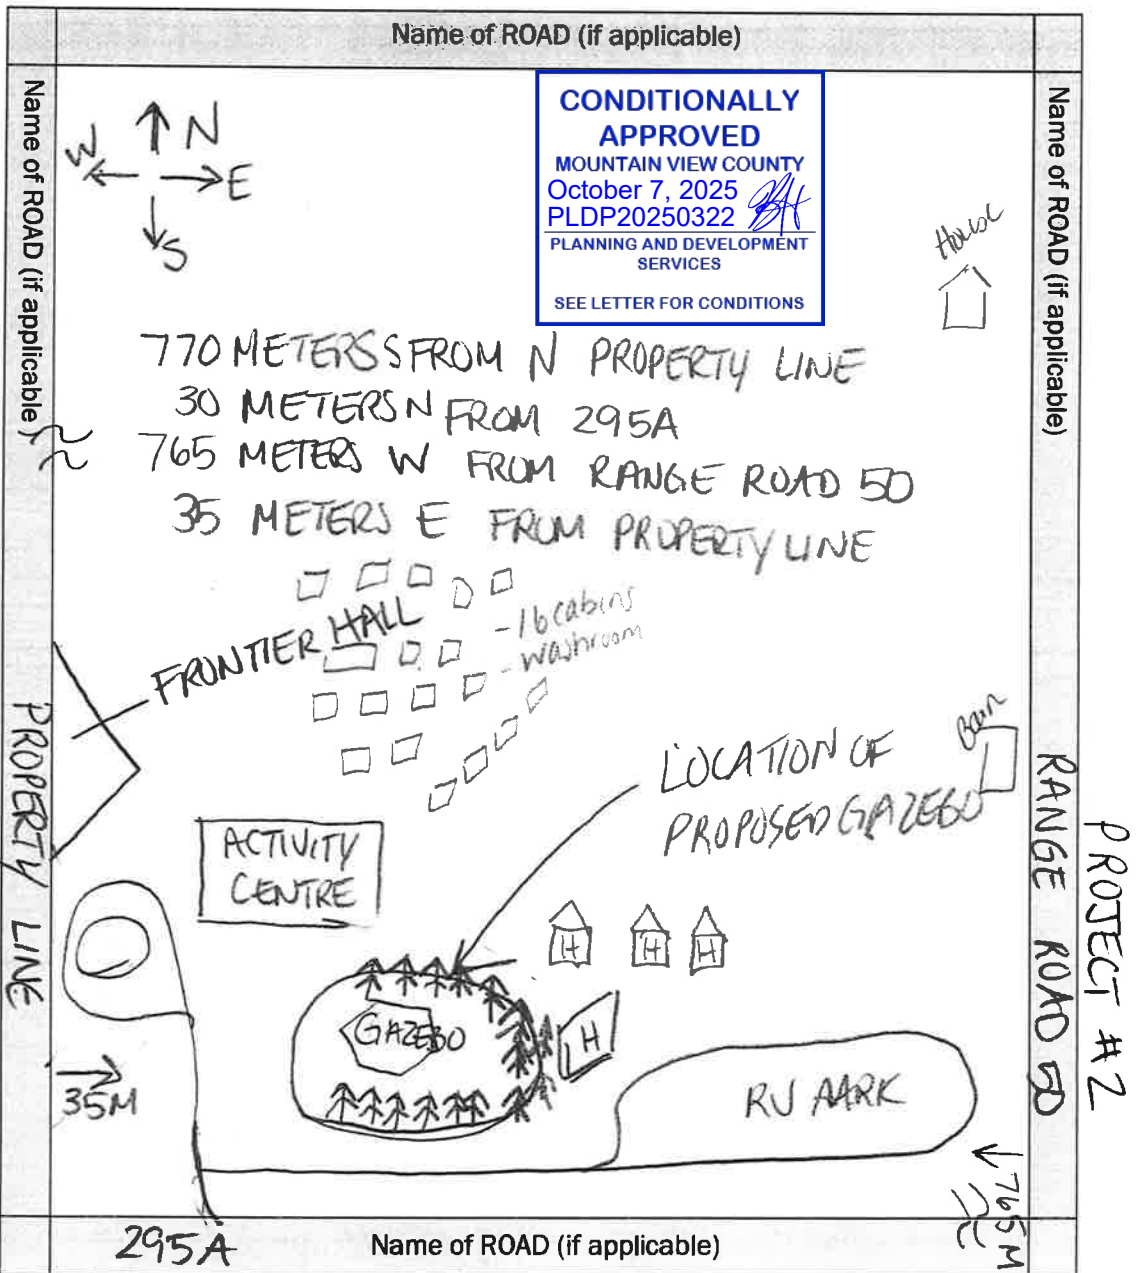 Name of ROAD (if applicable)
Name of ROAD (if applicable)
Name of ROAD (if applicable)
N
W
E
S
CONDITIONALLY
APPROVED
MOUNTAIN VIEW COUNTY
October 7, 2025
PLDP20250322
PLANNING AND DEVELOPMENT
SERVICES
SEE LETTER FOR CONDITIONS
House
770 METERS S FROM N PROPERTY LINE
30 METERS N FROM 295A
765 METERS W FROM RANGE ROAD 50
35 METERS E FROM PROPERTY LINE
FRONTIER HALL
- 16 cabins
- washroom
Barn
LOCATION OF
PROPOSED GAZEBO
PROPERTY LINE
RANGE ROAD 50
PROJECT #2
ACTIVITY
CENTRE
H
H
H
GAZEBO
H
RV PARK
35M
765M
295A
Name of ROAD (if applicable)